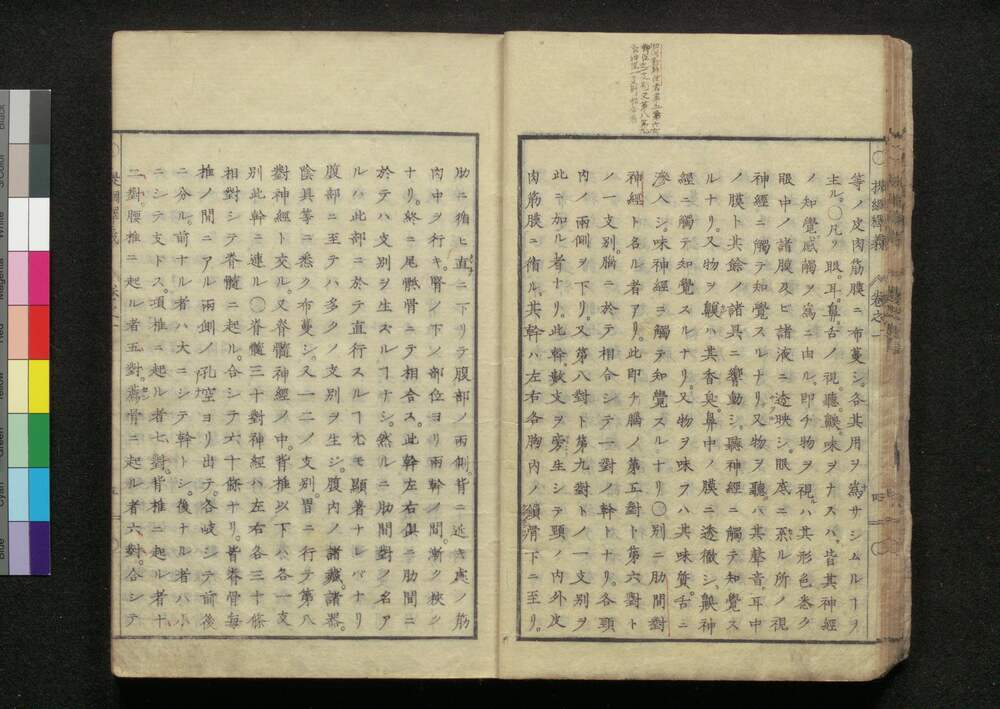 等ノ皮肉筋膜ニ布蔓シ。各其用ヲ爲サシムルヿヲ
主ル。〇凡ソ眼。耳。鼻舌ノ視。聽。齅。味ヲナスハ。皆其神經
ノ知覺。感觸ヲ爲ニ由ル。即チ物ヲ視ハ其形色悉ク
眼中ノ諸膜及ヒ諸液ニ透映シ。眼底ニ系ル所ノ視
神經ニ觸テ知覺スルナリ。又物ヲ聽ハ其聲音。耳中
ノ膜ト其餘ノ諸具ニ響動シ。聽神經ニ觸テ知覺ス
ルナリ。又物ヲ齅ハ其香臭。鼻中ノ膜ニ透徹シ。齅神
經ニ觸テ知覺スルナリ。又物ヲ味フハ其味質。舌ニ
滲入シ。味神經ニ觸テ知覺スルナリ〇別ニ肋間對
神經ト名ルアリ。此即チ腦ノ第五對ト第六對ト
ノ一支別。腦ニ於テ相合シテ一對ノ幹トナリ。各頸
内ノ兩側ヲ下リ。又第八對ト第九對トノ一支別ヲ
此ニ加ル者ナリ。此幹。數支ヲ旁生シテ頸ノ内外皮
肉筋膜ニ循ル。其幹ハ左右各胸内ノ鎖骨下ニ至リ。
肋ニ循ヒ直ニ下リテ腹部ノ兩側。背ニ近キ處ノ筋
肉中ヲ行キ。腎ノ下ノ部位ヨリ兩幹ノ間。漸ク狹ク
ナリ。終ニ尾骶骨ニテ相合ス。此幹左右俱ニ肋間ニ
於テハ支別ヲ生ズルヿナシ。然ルニ肋間對ノ名ア
ルハ此部ニ於テ直行スルヿ尤モ顯著ナレバナリ
腹部ニ至テハ多クノ支別ヲ生シ。腹内ノ諸臟。諸器。
陰具等ニ悉ク布蔓シ。又一二ノ支別。胃ニ行テ第八
對神經ト交ル。又脊髓神經ノ中背椎以下ハ各一支
別此幹ニ連ル〇脊髓三十對神經ハ左右各三十條
相對シテ脊髓ニ起ル。合シテ六十條ナリ。皆脊骨每
椎ノ間ニアル兩側ノ孔空ヨリ出テ。各岐シテ前後
ニ分ル。前ナル者ハ大ニシテ幹トシ。後ナル者ハ小
ニシテ支トス。項椎ニ起ル者七對。背椎ニ起ル者十
二對。腰椎ニ起ル者五對。薦骨ニ起ル者六對。合シテ